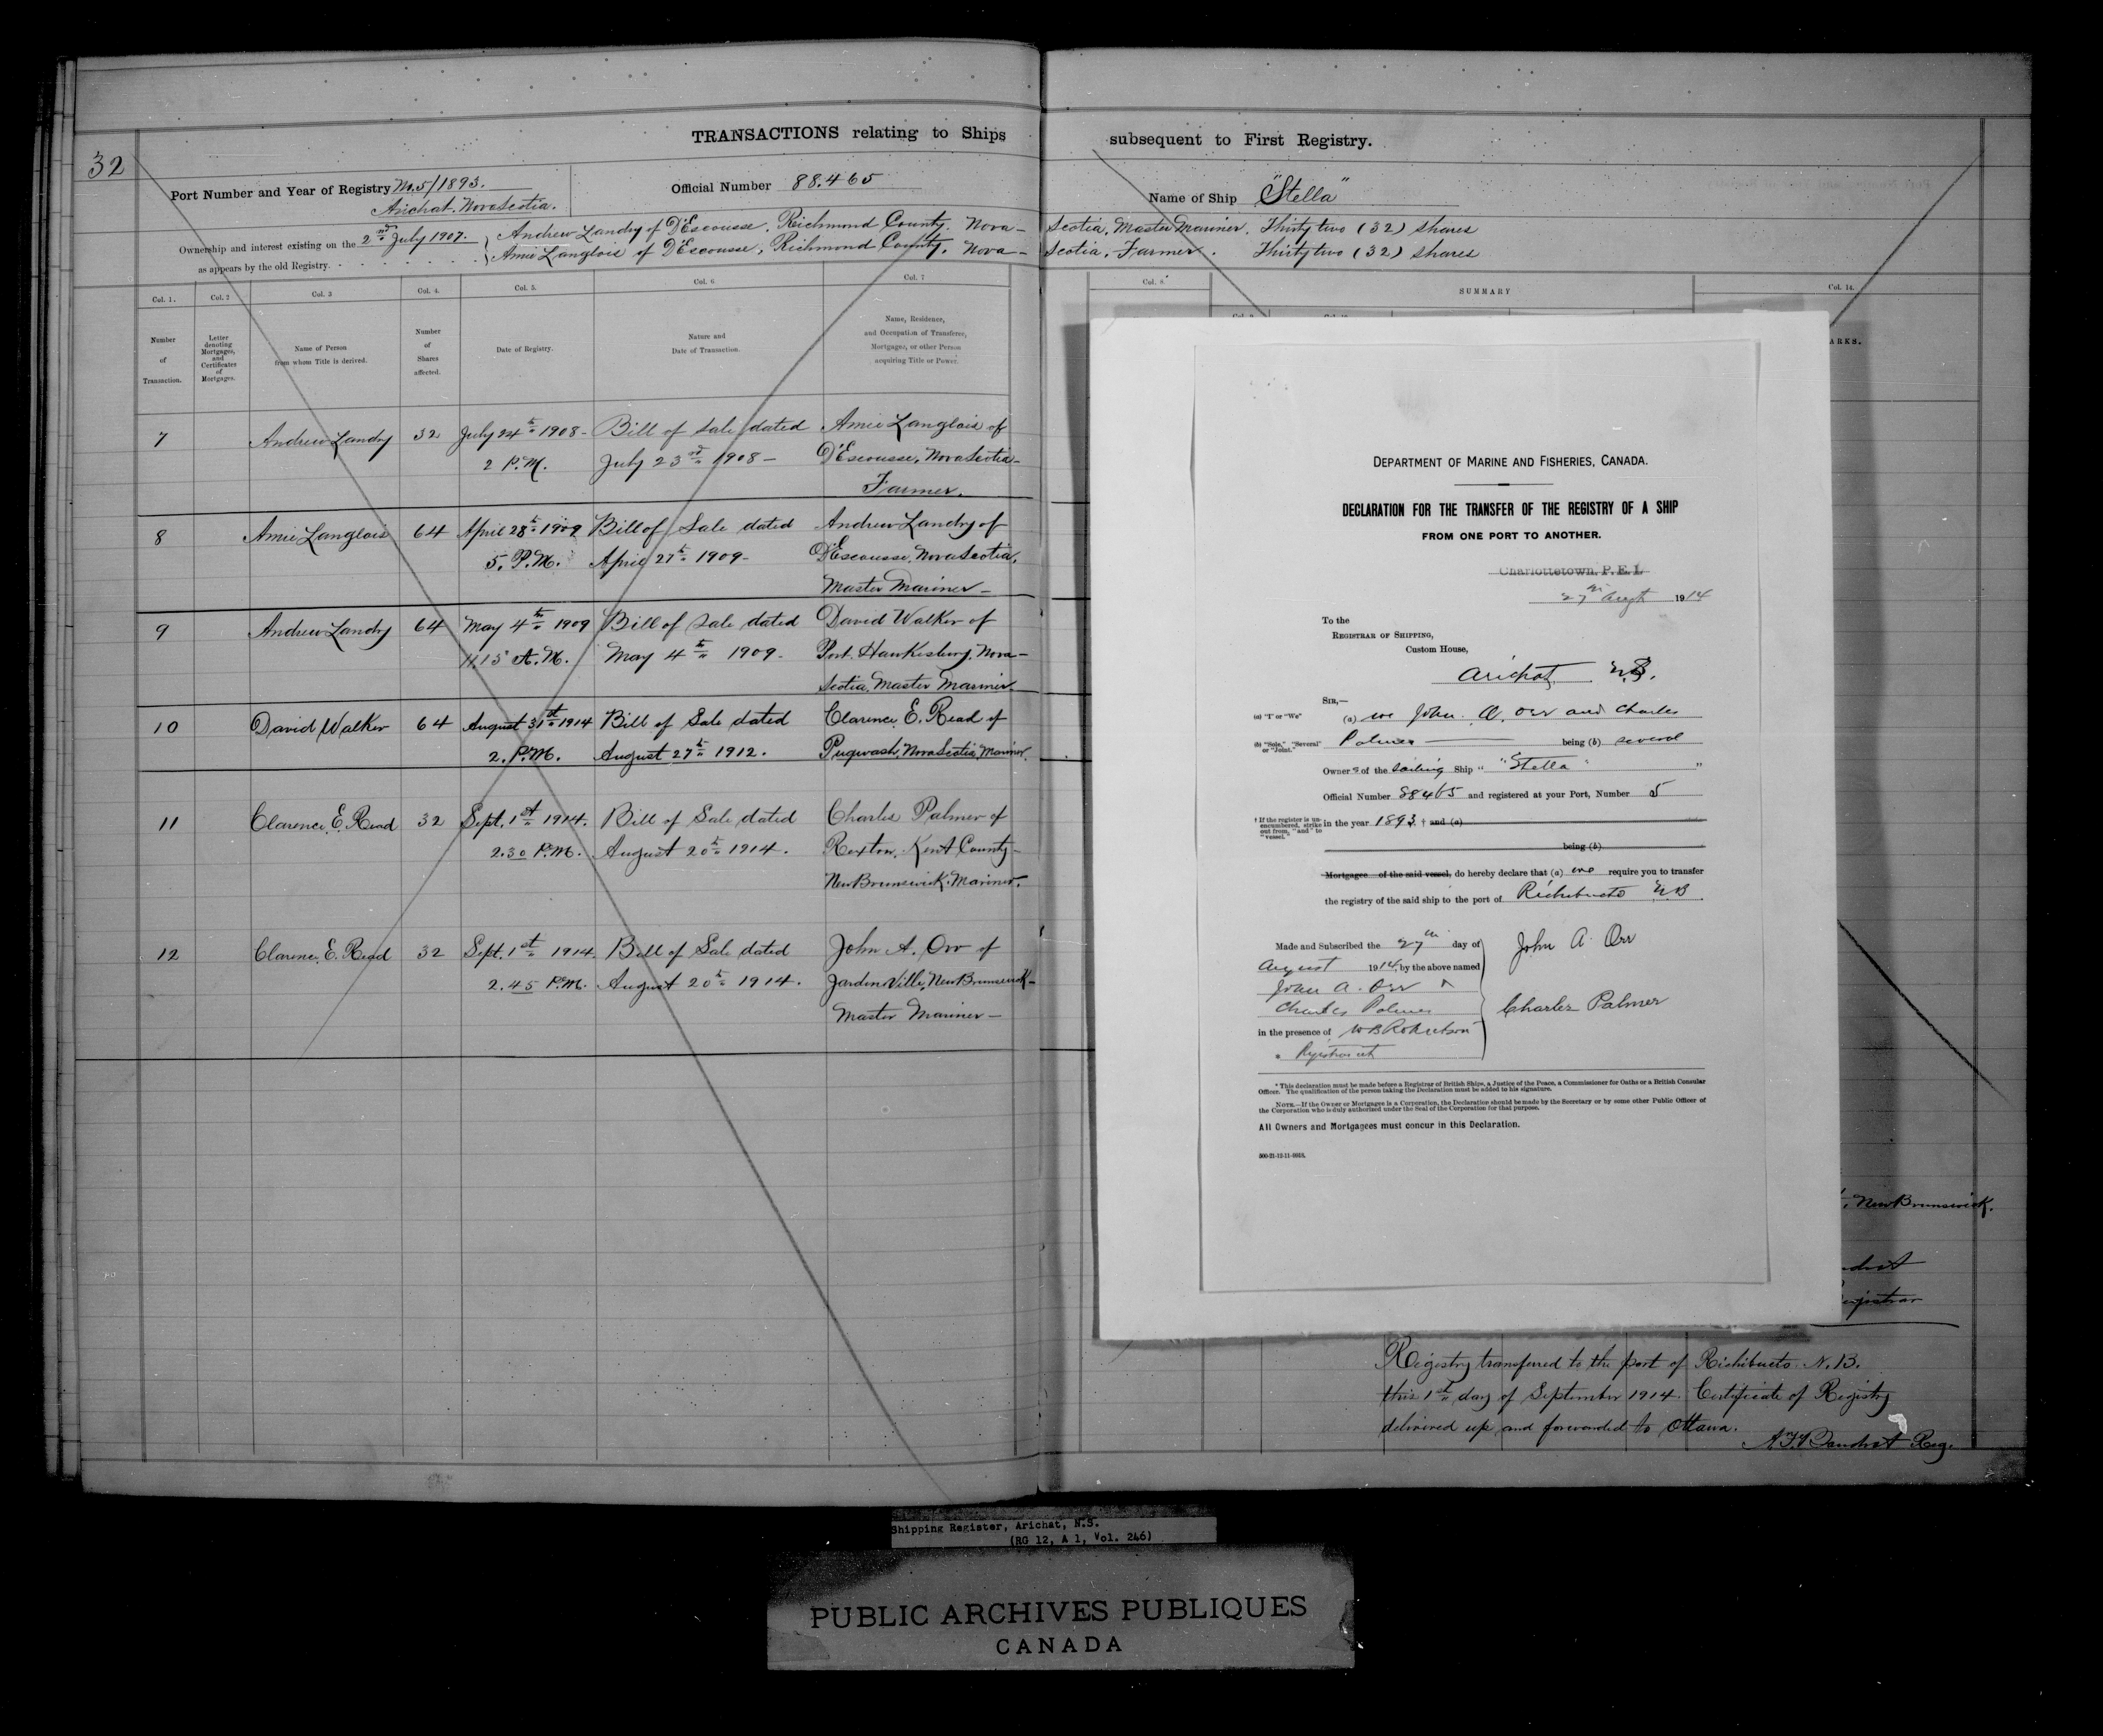 32
TRANSACTIONS relating to Ships subsequent to First Registry.
Port Number and Year of Registry No. 5/1893.
Arichat. Nova Scotia.
Official Number 88.465
Name of Ship "Stella"
Ownership and interest existing on the 2nd July 1907.
as appears by the old Registry.
Andrew Landry of D'Escousse, Richmond County, Nova - Scotia, Master Mariner. Thirty two (32) shares
Amie Langlois of D'Escousse, Richmond County, Nova - Scotia, Farmer. Thirty two (32) shares
Col. 1. Col. 2 Col. 3 Col. 4. Col. 5. Col. 6 Col. 7
Col. 8. SUMMARY Col. 14.
Number of Transaction.
Letter denoting Mortgages, and Certificates of Mortgages.
Name of Person from whom Title is derived.
Number of Shares affected.
Date of Registry.
Nature and Date of Transaction.
Name, Residence, and Occupation of Transferee, Mortgagee, or other Person acquiring Title or Power.
ARKS.
7 Andrew Landry 32 July 24th 1908 - Bill of Sale dated Amie Langlois of
2 P.M. July 23rd 1908 - D'Escousse, Nova Scotia -
Farmer.
8 Amie Langlois 64 April 28th 1909 Bill of Sale dated Andrew Landry of
5. P.M. April 27th 1909 - D'Escousse, Nova Scotia,
Master Mariner -
9 Andrew Landry 64 May 4th 1909 Bill of Sale dated David Walker of
11.15 A.M. May 4th 1909 - Port Hawkesbury, Nova -
Scotia, Master Mariner.
10 David Walker 64 August 31st 1914 Bill of Sale dated Clarence E. Read of
2. P.M. August 27th 1912. Pugwash, Nova Scotia, Mariner.
11 Clarence E. Read 32 Sept. 1st 1914. Bill of Sale dated Charles Palmer of
2.30 P.M. August 20th 1914. Rexton, Kent County -
New Brunswick. Mariner.
12 Clarence E. Read 32 Sept. 1st 1914. Bill of Sale dated John A. Orr of
2.45 P.M. August 20th 1914. Jardinville, New Brunswick -
Master Mariner -
DEPARTMENT OF MARINE AND FISHERIES, CANADA.
DECLARATION FOR THE TRANSFER OF THE REGISTRY OF A SHIP
FROM ONE PORT TO ANOTHER.
Charlottetown, P. E. I.
27th Augt 1914
To the
REGISTRAR OF SHIPPING,
Custom House,
Arichat N.S.
SIR,—
(a) "I" or "We" (a) we John A. Orr and Charles
(b) "Sole," "Several" or "Joint." Palmer being (b) several
Owners of the sailing Ship " "Stella" "
Official Number 88465 and registered at your Port, Number 5
† If the register is unencumbered, strike out from, "and" to "vessel."
in the year 1893. † and (a)
being (b)
Mortgagee of the said vessel, do hereby declare that (a) we require you to transfer
the registry of the said ship to the port of Richibucto N.B.
Made and Subscribed the 27th day of
August 1914, by the above named
John A. Orr
Charles Palmer
in the presence of W B Robertson
John A. Orr
Charles Palmer
* This declaration must be made before a Registrar of British Ships, a Justice of the Peace, a Commissioner for Oaths or a British Consular
Officer. The qualification of the person taking the Declaration must be added to his signature.
NOTE.—If the Owner or Mortgagee is a Corporation, the Declaration should be made by the Secretary or by some other Public Officer of
the Corporation who is duly authorized under the Seal of the Corporation for that purpose.
All Owners and Mortgagees must concur in this Declaration.
, New Brunswick.
Registry transferred to the port of Richibucto. N.B.
this 1st day of September 1914. Certificate of Registry
delivered up and forwarded to Ottawa.
Reg.
Shipping Register, Arichat, N.S.
(RG 12, A 1, Vol. 246)
PUBLIC ARCHIVES PUBLIQUES
CANADA